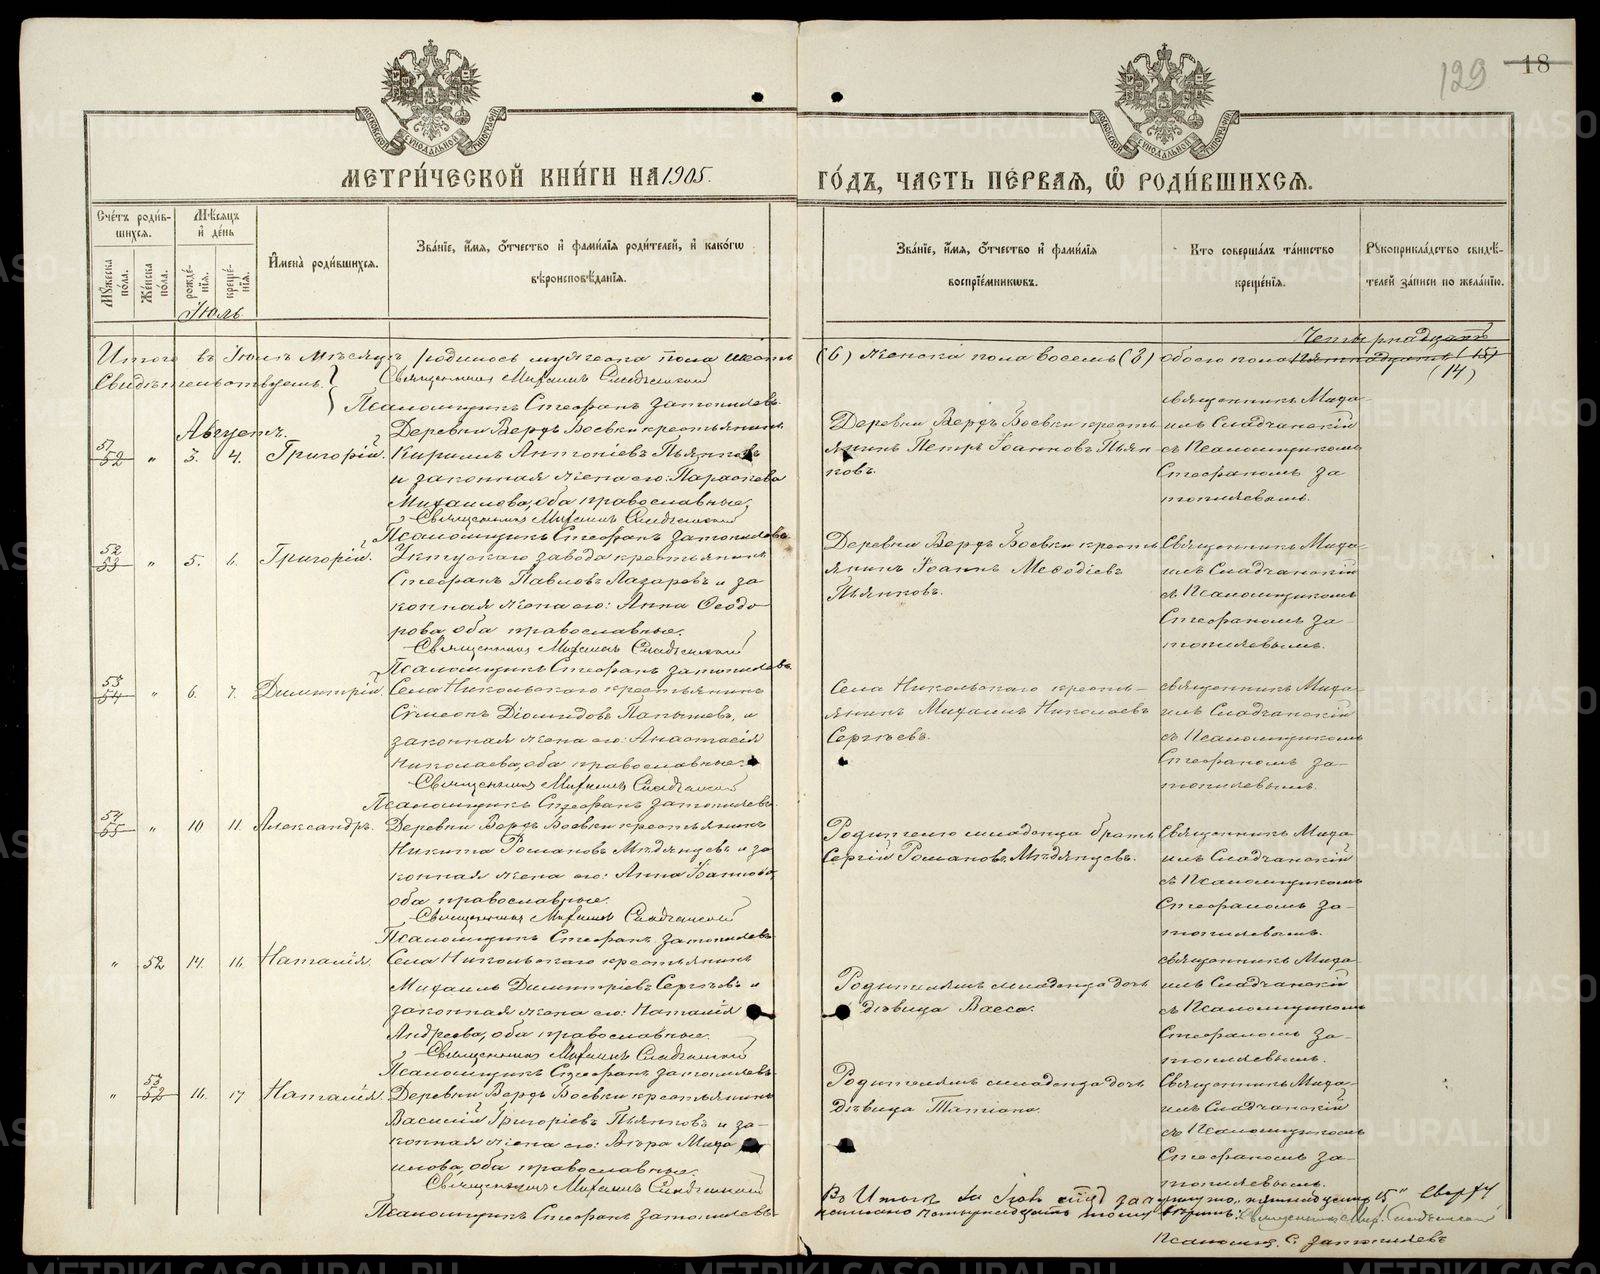 129
18
МЕТРИ́ЧЕСКОЙ КНИ́ГИ НА 1905.
ГО́ДЪ, ЧАСТЬ ПЕ́РВАѦ, Ѡ҆ РОДИ́ВШИХСѦ.
Сче́тъ роди́в-
шихсѧ.
Мѣ́сѧцъ
и҆ де́нь
И҆мена̀ роди́вшихсѧ.
Зва́нїе, и҆́мѧ, ѻ҆́тчество и҆ фами́лїѧ роди́телей, и҆ како́гѡ
вѣроисповѣ́данїѧ.
Зва́нїе, и҆́мѧ, ѻ҆́тчество и҆ фами́лїѧ
воспрїе́мникѡвъ.
Кто соверша́лъ та́инство
креще́нїѧ.
Рꙋкоприкла́дство свидѣ́-
телей за́писи по жела́нїю.
Мꙋ́жеска
по́ла.
Же́нска
по́ла.
рожде́-
нїѧ.
креще́-
нїѧ.
Іюль
Итого въ Іюлѣ мѣсяцѣ родилось мужеска пола шесть (6) женска пола восемь (8) обоего пола пятнадцать (15)
Четырнадцать
(14)
Свидѣтельствуемъ: Священникъ Михаилъ Сладчанскій
Псаломщикъ Стефанъ Затопляевъ.
Августъ.
51
52 " 3. 4. Григорій. Деревни Верхъ Боевки крестьянинъ
Кириллъ Антоніевъ Пьянковъ
и законная жена его: Параскева
Михаилова, оба православные.
Священникъ Михаилъ Сладчанскій
Псаломщикъ Стефанъ Затопляевъ.
Деревни Верхъ Боевки кресть
янинъ Петръ Іоанновъ Пьян
ковъ.
Священникъ Миха-
илъ Сладчанскій
съ Псаломщикомъ
Стефаномъ За
топляевымъ.
52
53 " 5. 6. Григорій. Уктускаго завода крестьянинъ
Стефанъ Павловъ Лазаревъ и за
конная жена его: Анна Ѳеодо-
рова, оба православные.
Священникъ Михаилъ Сладчанскій
Псаломщикъ Стефанъ Затопляевъ.
Деревни Верхъ Боевки кресть
янинъ Іоаннъ Меѳодіевъ
Пьянковъ.
Священникъ Миха-
илъ Сладчанскій
съ Псаломщикомъ
Стефаномъ За-
топляевымъ.
53
54 " 6. 7. Димитрій. Села Никольскаго крестьянинъ
Сѵмеонъ Діомидовъ Папышевъ, и
законная жена его: Анастасія
Николаева, оба православные.
Священникъ Михаилъ Сладчанскій
Псаломщикъ Стефанъ Затопляевъ
Села Никольскаго кресть-
янинъ Михаилъ Николаевъ
Сергѣевъ.
Священникъ Миха-
илъ Сладчанскій
съ Псаломщикомъ
Стефаномъ За-
топляевымъ.
54
55 " 10 11. Александръ. Деревни Верхъ Боевки крестьянинъ
Никита Романовъ Мѣдянцевъ и за
конная жена его: Анна Іоаннова,
оба православные.
Священникъ Михаилъ Сладчанскій
Псаломщикъ Стефанъ Затопляевъ
Родителю младенца братъ
Сергій Романовъ Мѣдянцевъ.
Священникъ Миха-
илъ Сладчанскій
съ Псаломщикомъ
Стефаномъ За-
топляевымъ.
" 52 14. 16. Наталія. Села Никольскаго крестьянинъ
Михаилъ Димитріевъ Сергѣевъ и
законная жена его: Наталія
Андреева, оба православные.
Священникъ Михаилъ Сладчанскій
Псаломщикъ Стефанъ Затопляевъ
Родителямъ младенца дочь
дѣвица Васса.
Священникъ Миха-
илъ Сладчанскій
съ Псаломщикомъ
Стефаномъ За-
топляевымъ.
53
" 52 16. 17 Наталія. Деревни Верхъ Боевки крестьянинъ
Василій Григоріевъ Пьянковъ и за-
конная жена его: Вѣра Миха
илова, оба православные.
Священникъ Михаилъ Сладчанскій
Псаломщикъ Стефанъ Затопляевъ
Родителямъ младенца дочь
дѣвица Татіана.
Священникъ Миха-
илъ Сладчанскій
съ Псаломщикомъ
Стефаномъ За-
топляевымъ.
Въ Итогѣ за Іюль зачеркнуто „пятнадцать 15" сверху
написано четырнадцать тому вѣрить. Священникъ Мих. Сладчанскій
Псаломщ. С. Затопляевъ
METRIKI.GASO-URAL.RU